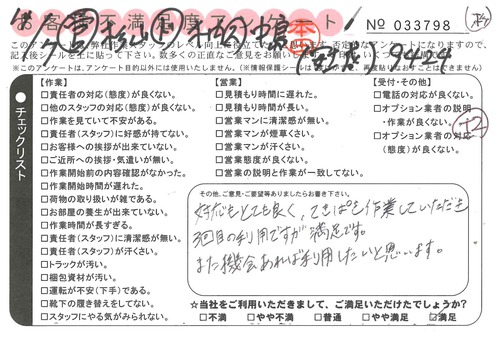 お客様不満足度アンケート
No 033798
9424
+2
チェックリスト
【作業】
□責任者の対応(態度)が良くない。
□他のスタッフの対応(態度)が良くない。
□作業を見ていて不安がある。
□責任者(スタッフ)に好感が持てない。
□お客様への挨拶が出来ていない。
□ご近所への挨拶・気遣いが無い。
□作業開始前の内容確認がなかった。
□作業開始時間が遅れた。
□荷物の取り扱いが雑である。
□お部屋の養生が出来ていない。
□作業時間が長すぎる。
□責任者(スタッフ)に清潔感が無い。
□責任者(スタッフ)が汗くさい。
□トラックが汚い。
□梱包資材が汚い。
□運転が不安(下手)である。
□靴下の履き替えをしてない。
□スタッフにやる気がみられない。
【営業】
□見積もり時間に遅れた。
□見積もり時間が長い。
□営業マンに清潔感が無い。
□営業マンが煙草くさい。
□営業マンが汗くさい。
□営業態度が良くない。
□営業の説明と作業が一致してない。
【受付・その他】
□電話の対応が良くない。
□オプション業者の説明
・作業が良くない。
□オプション業者の対応
(態度)が良くない。
その他、ご意見・ご要望等ありましたらお書き下さい。
対応もとても良く、てきぱき作業していただき
3回目の利用ですが満足です。
また機会あれば利用したいと思います。
☆当社をご利用いただきまして、ご満足いただけたでしょうか?
□不満 □やや不満 □普通 □やや満足 ☑満足